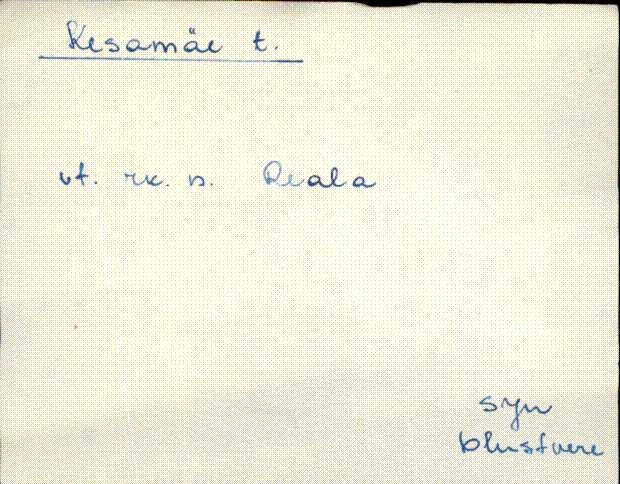 Kesamäe t.
vt. rk. n. Reala
syn
Olustvere